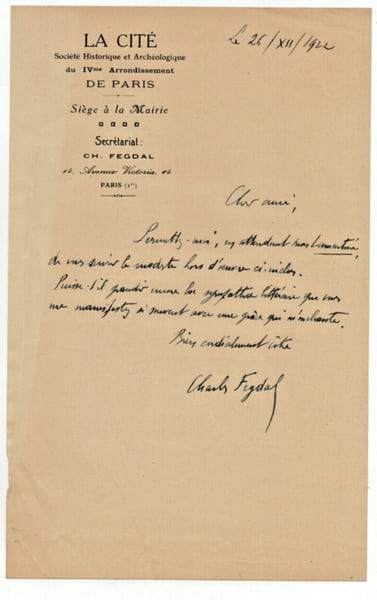 LA CITÉ
Société Historique et Archéologique
du IVme Arrondissement
DE PARIS
Siège à la Mairie
Secrétariat :
CH. FEGDAL
14, Avenue Victoria, 14
PARIS (1er)
Le 26/XII/1922
Cher ami,
Permettez-moi, en attendant
de vous servir le modeste hors d'œuvre ci-inclus.
Puisse-t-il grandir encore la sympathie littéraire que vous
me manifestez si souvent avec une grâce qui m'enchante.
Bien cordialement vôtre
Charles Fegdal